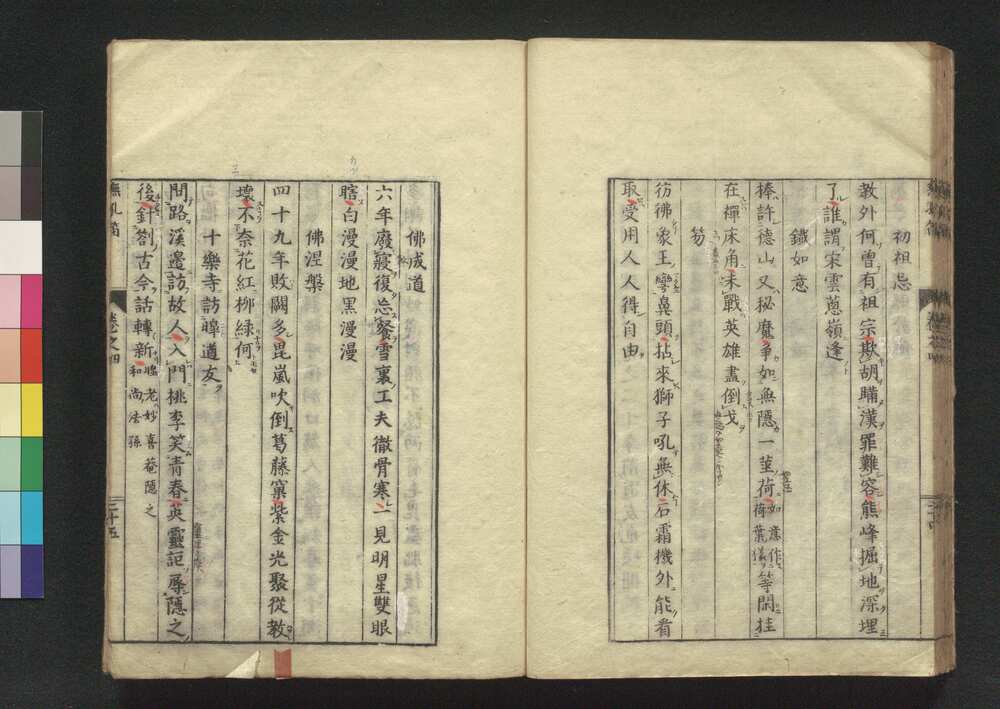 初祖忌
教外何曾有祖宗欺胡瞞漢罪難容熊峰掘地深埋
了誰謂宋雲葱嶺逢
鐵如意
棒許德山叉秘魔争如無隱一莖荷如意作荷葉樣等閑挂
在禪床角未戰英雄盡倒戈
笏
彷彿象王彎鼻頭拈來獅子吼無休石霜機外能看
取受用人人得自由
二十四
佛成道
六年廢寢復忘餐雪裏工夫徹骨寒一見明星雙眼
瞎白漫漫地黑漫漫
佛涅槃
四十九年敗闕多毘嵐吹倒葛藤窠紫金光聚從教
壞不奈花紅柳綠何
十樂寺訪暐道友
問路溪邉訪故人入門桃李笑青春英靈詎辱隱之
後針劄古今話轉新和尚法孫
臨老妙喜菴隱之
無孔笛
卷之四
二十五